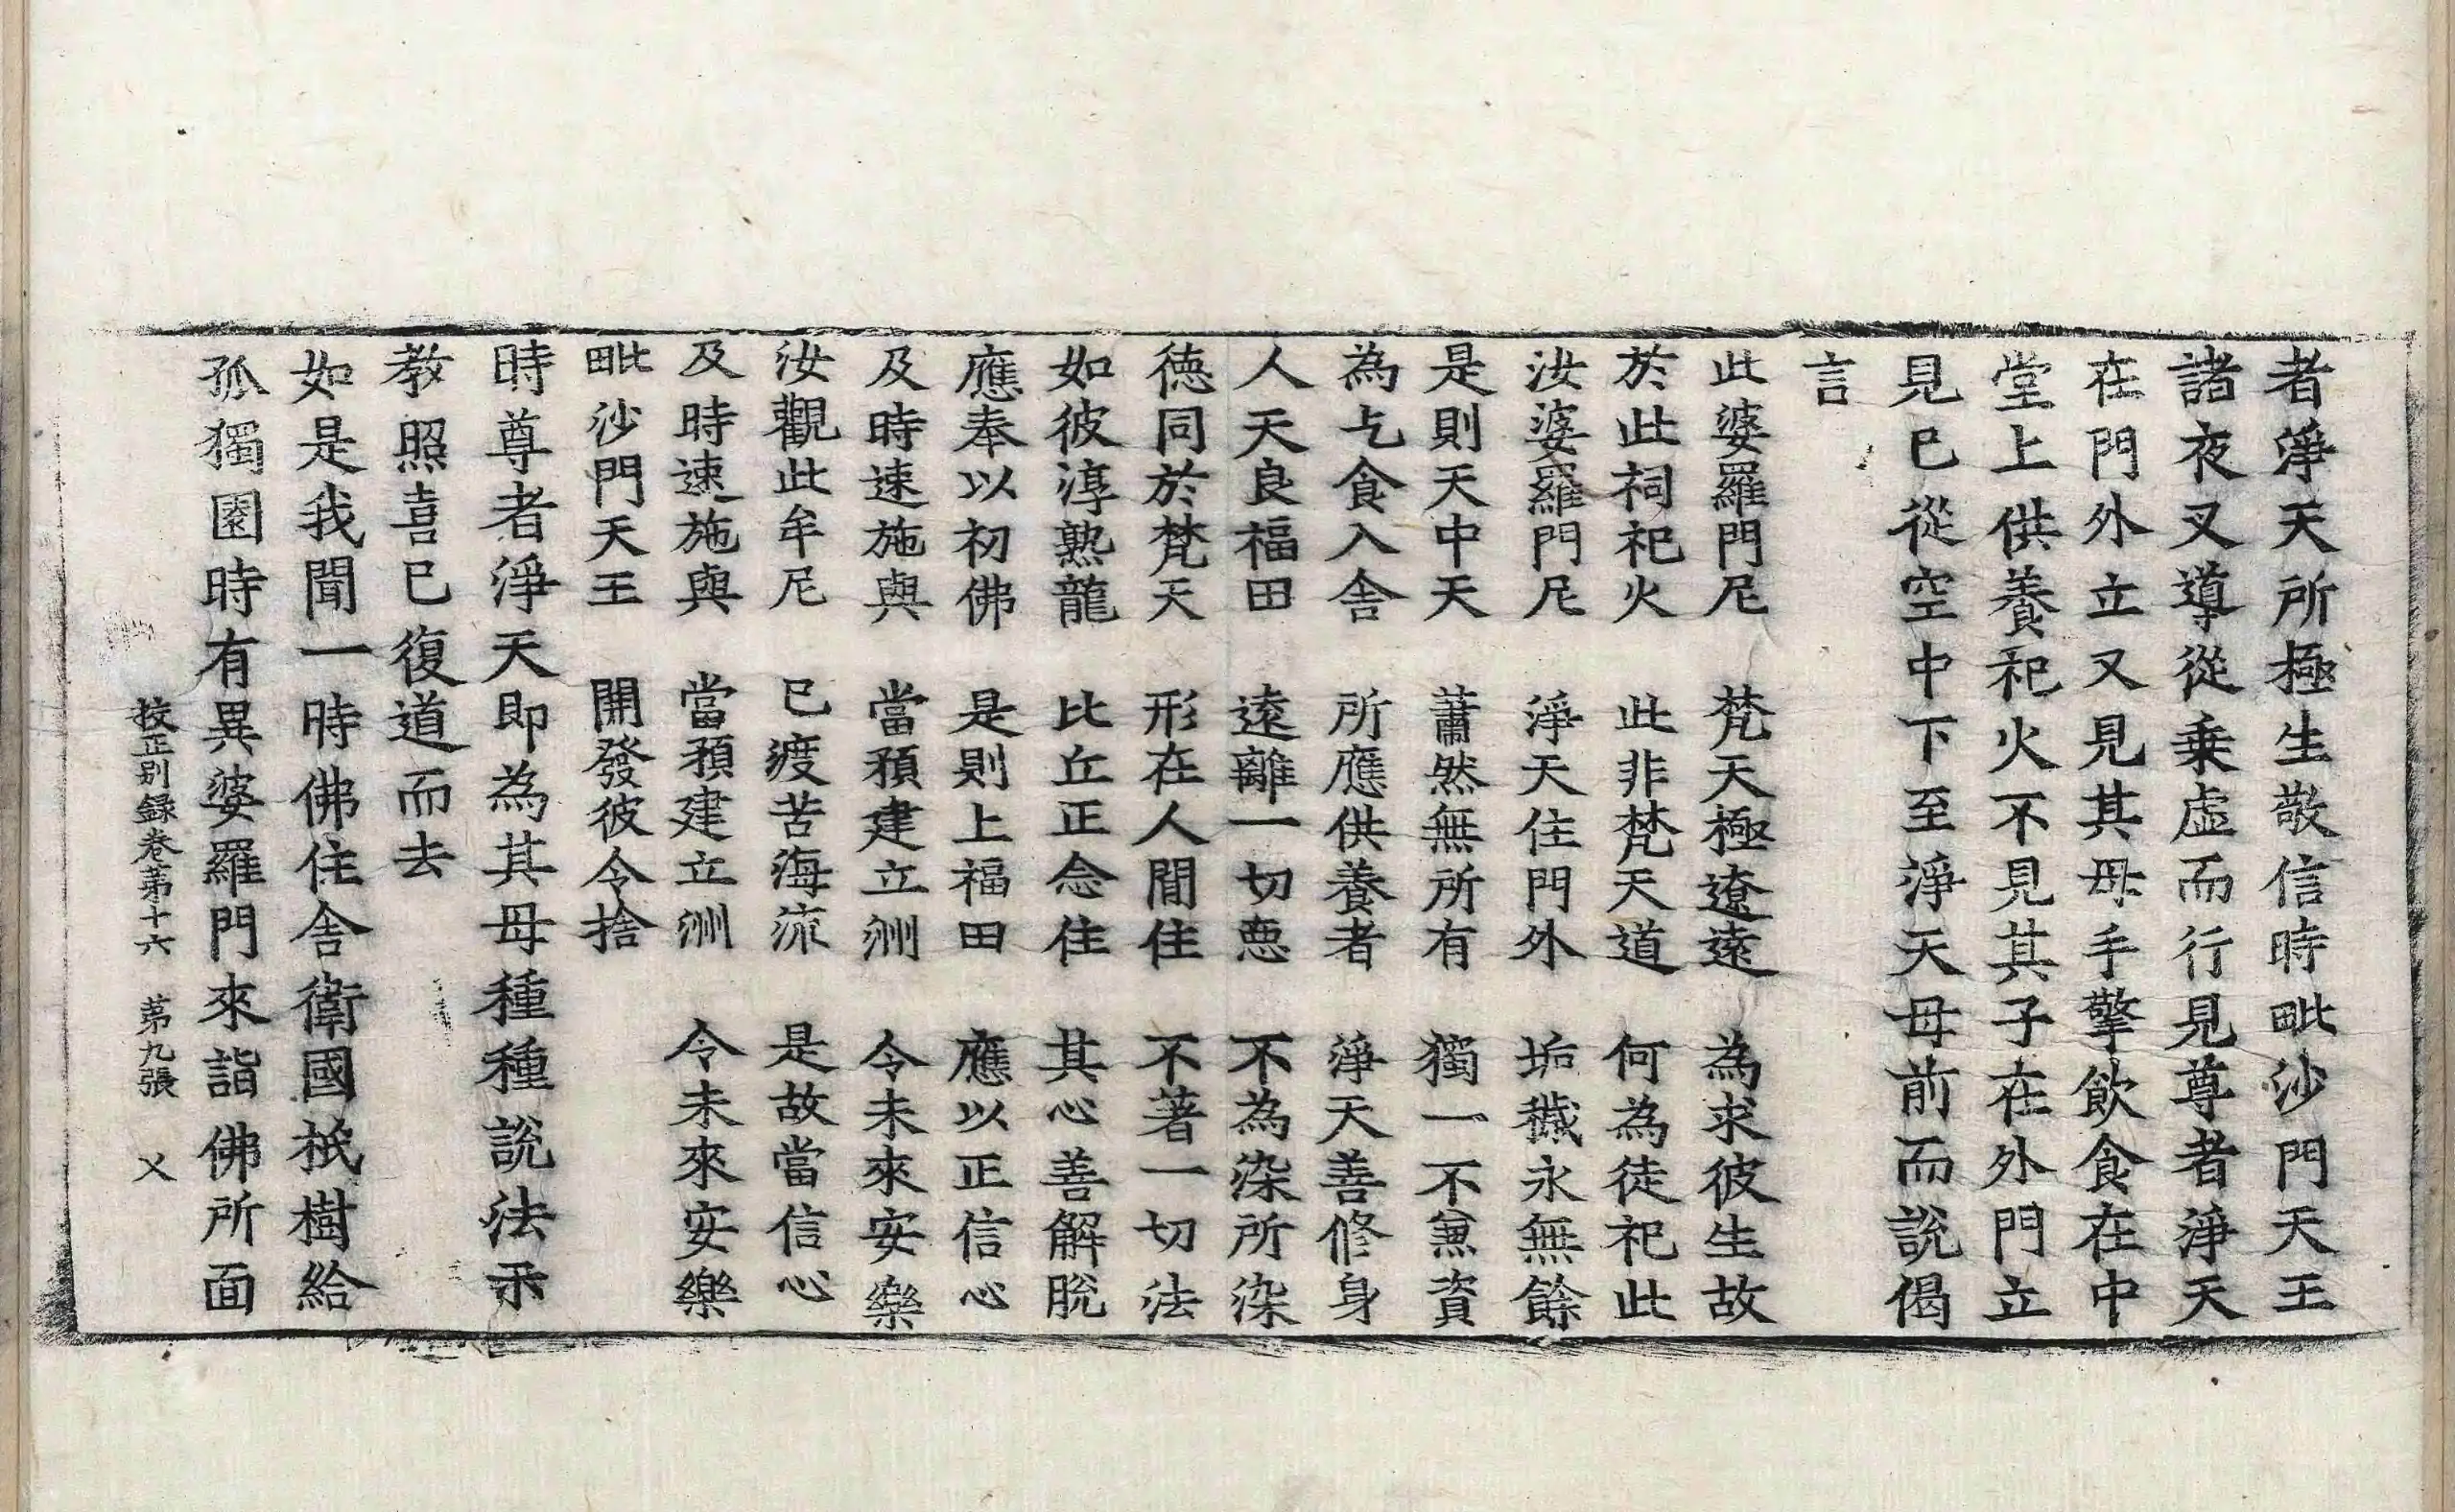 者淨天所極生敬信時毗沙門天王
諸夜叉導從乗虛而行見尊者淨天
在門外立又見其母手擎飮食在中
堂上供養祀火不見其子在外門立
見已從空中下至淨天母前而說偈
言
此婆羅門尼　梵天極遼遠　為求彼生故
於此祠祀火　此非梵天道　何為徒祀此
汝婆羅門尼　淨天住門外　垢穢永無餘
是則天中天　蕭然無所有　獨一不兼資
為乞食入舎　所應供養者　淨天善修身
人天良福田　遠離一切惡　不為染所染
徳同於梵天　形在人閒住　不著一切法
如彼淳熟龍　比丘正念住　其心善解脫
應奉以初佛　是則上福田　應以正信心
及時速施與　當預建立洲　令未來安樂
汝觀此牟尼　已渡苦海流　是故當信心
及時速施與　當預建立洲　令未來安樂
毗沙門天王　開發彼令捨
時尊者淨天即為其母種種說法示
教照喜已復道而去
如是我聞一時佛住舎衛國祇樹給
孤獨園時有異婆羅門來詣佛所面
挍正别録卷苐十六　苐九張　乂